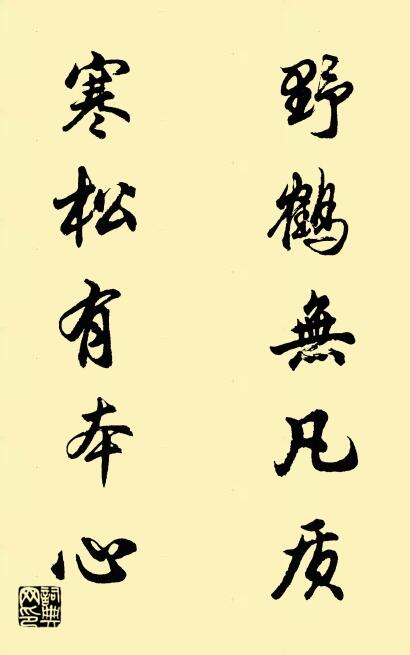 野鹤無凡质
寒松有本心
詞典网印